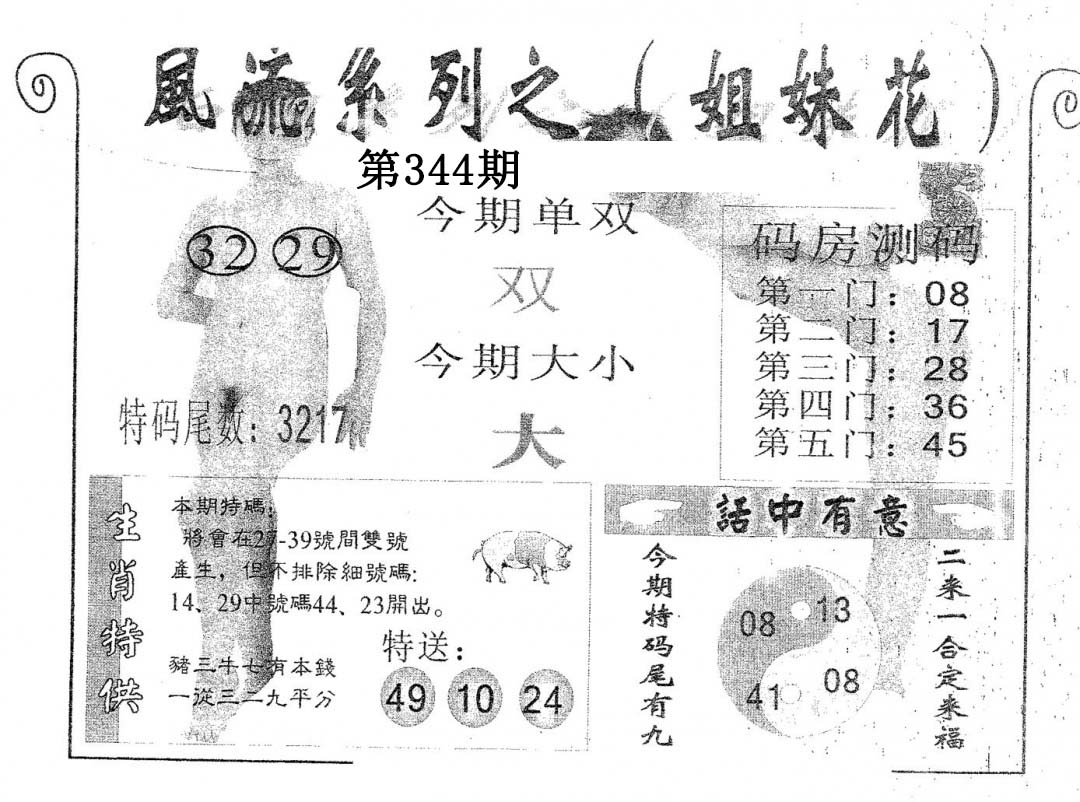 風流系列之（姐妹花）
第344期
今期单双
双
今期大小
大
32 29
特码尾数：3217
码房测码
第一门：08
第二门：17
第三门：28
第四门：36
第五门：45
生肖特供
本期特碼：
將會在27-39號間雙號
產生，但不排除細號碼：
14、29中號碼44、23開出。
豬三牛七有本錢
一從三二九平分
特送：
49 10 24
話中有意
今期特码尾有九
08 13
41 08
二来一合定来福